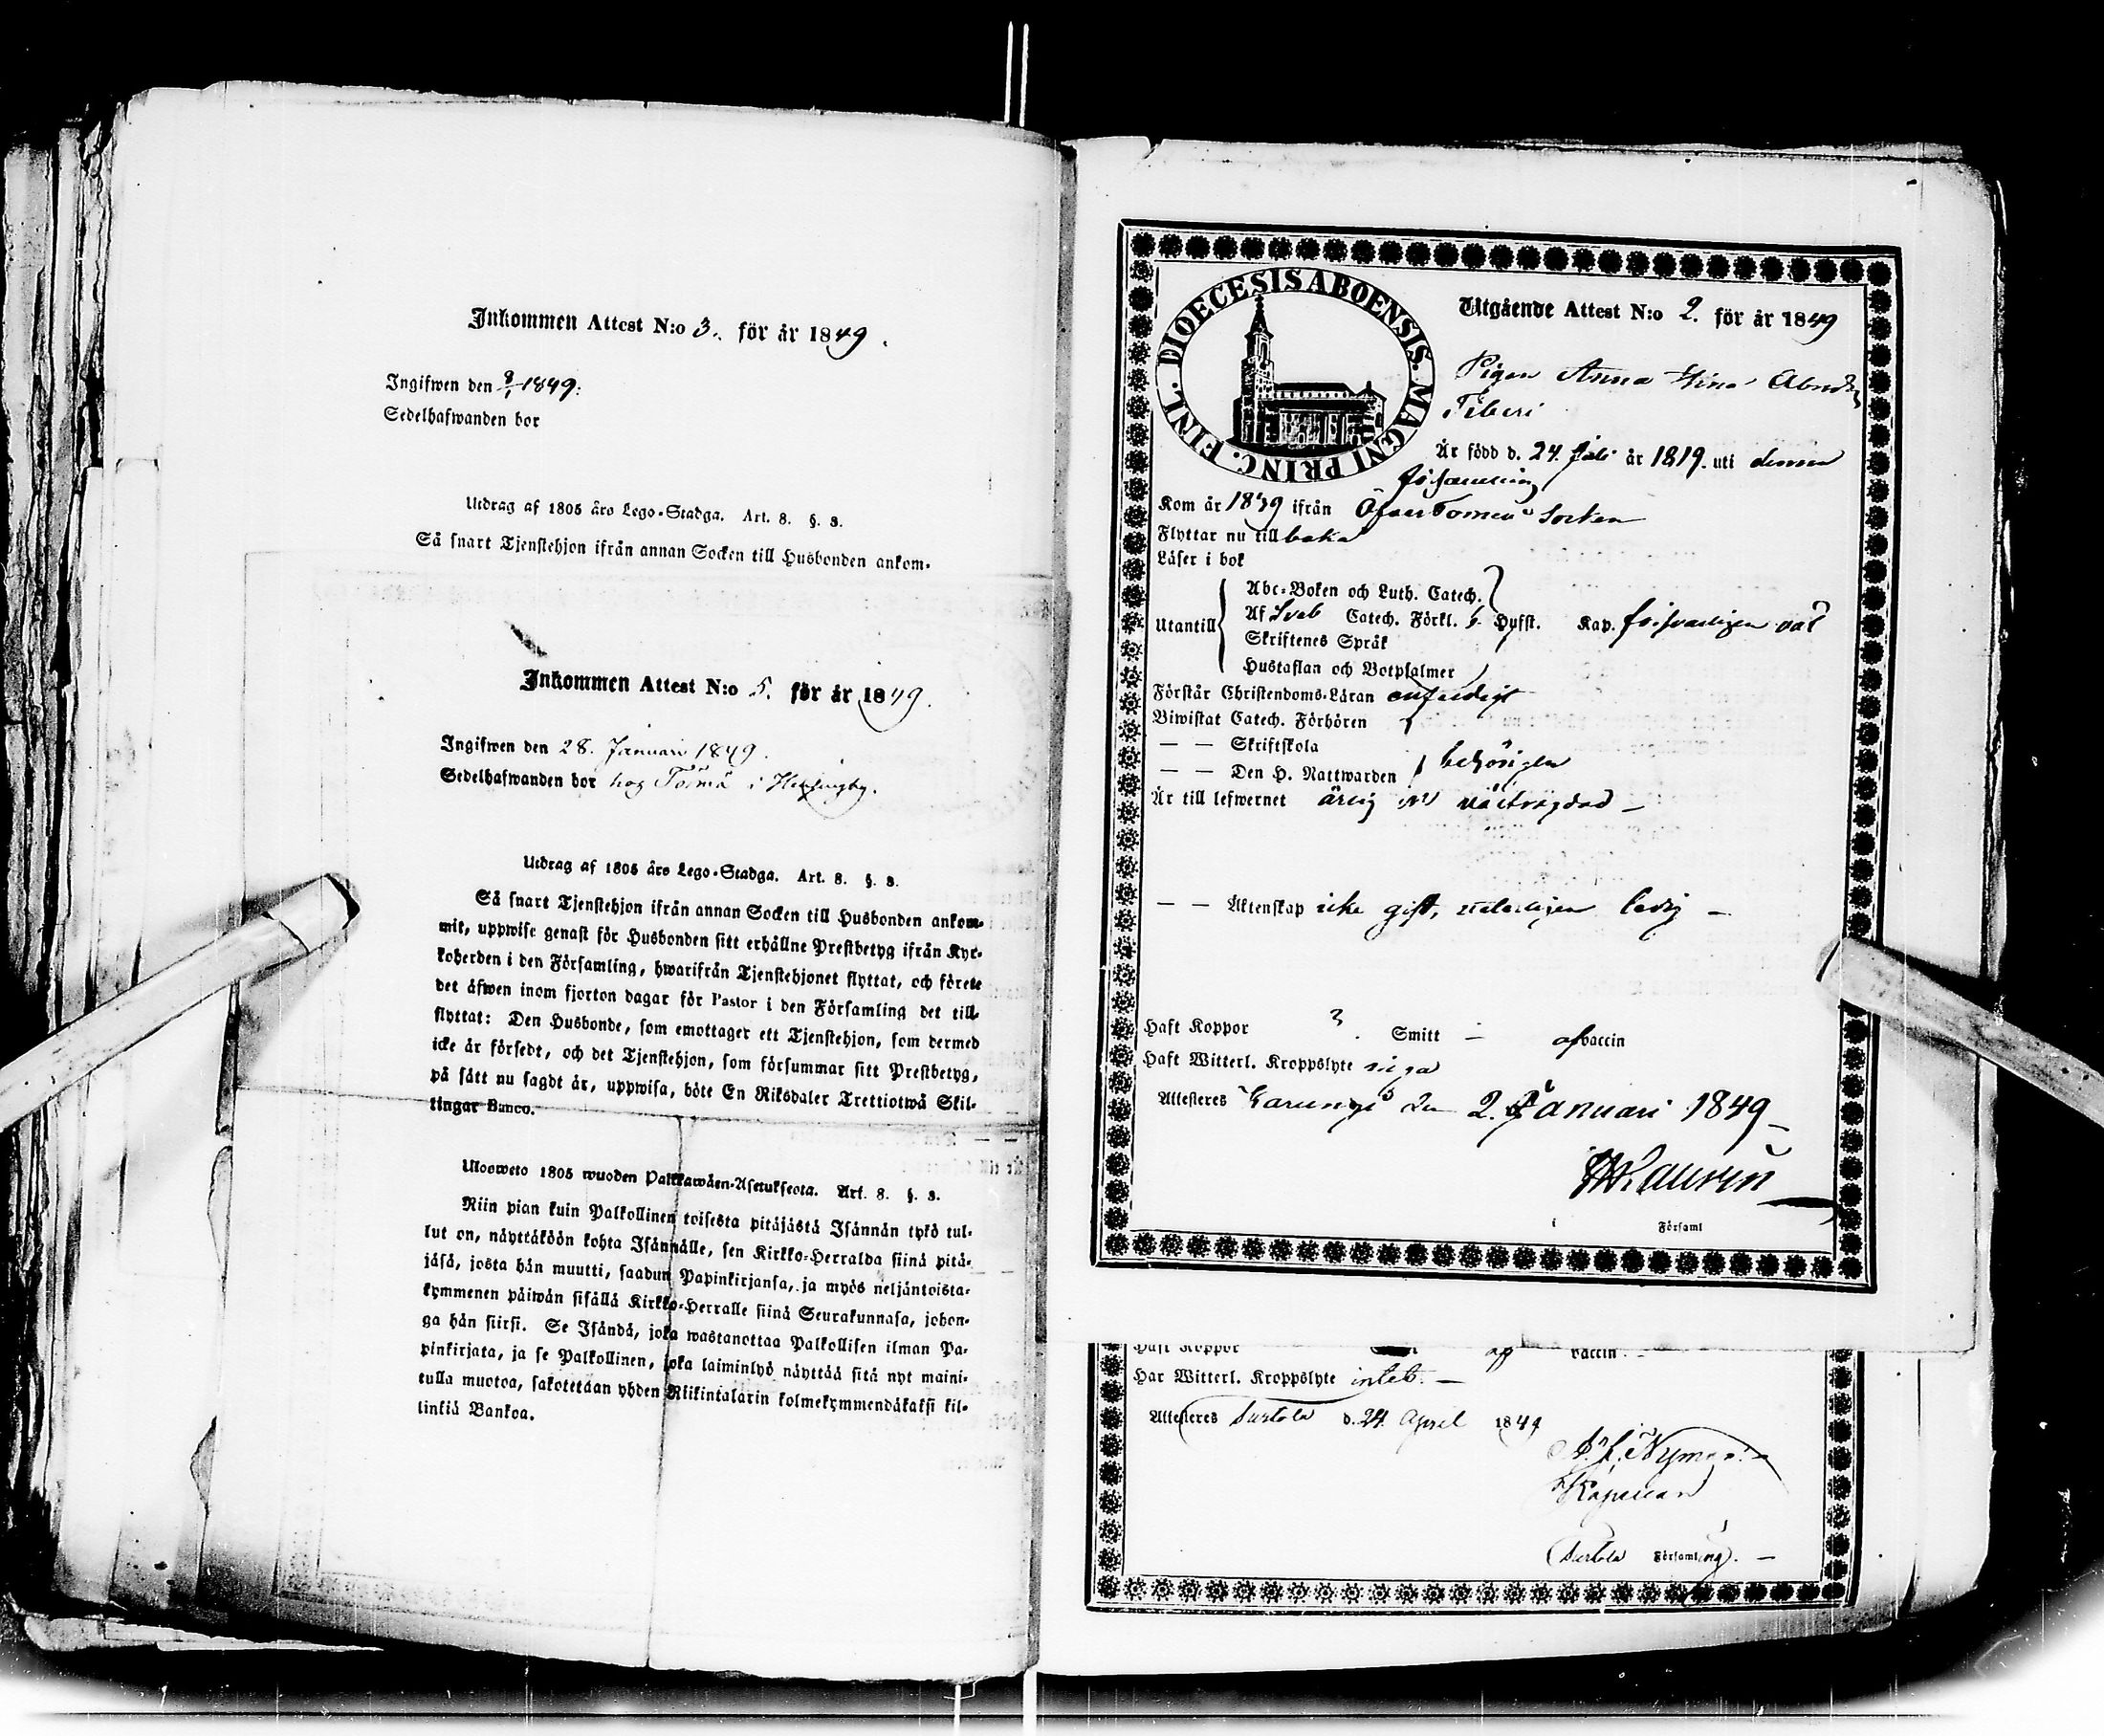 Inkommen Attest N:o 3. för år 1849.
Ingifwen den 8/1 1849.
Sedelhafwanden bor
Utdrag af 1805 års Lego-Stadga. Art. 8. §. 3.
Så snart Tjenstehjon ifrån annan Socken till Husbonden ankom-
Inkommen Attest N:o 5. för år 1849.
Ingifwen den 28. Januari 1849.
Sedelhafwanden bor hos i
Utdrag af 1805 års Lego-Stadga. Art. 8. §. 3.
Så snart Tjenstehjon ifrån annan Socken till Husbonden ankom-
mit, uppwise genast för Husbonden sitt erhållne Prestbetyg ifrån Kyr-
koherden i den Församling, hwarifrån Tjenstehjonet flyttat, och förete
det åfwen inom fjorton dagar för Pastor i den Församling det till-
flyttat: Den Husbonde, som emottager ett Tjenstehjon, som dermed
icke är försedt, och det Tjenstehjon, som försummar sitt Prestbetyg,
på sätt nu sagdt är, uppwisa, böte En Riksdaler Trettiotwå Skil-
lingar Banco.
Ulosweto 1805 wuoden Palkkawäen-Asetuksesta. Art. 8. §. 3.
Niin pian kuin Palkollinen toisesta pitäjästä Isännän tykö tul-
lut on, näyttäköön kohta Isännälle, sen Kirkko-Herralda siinä pitä-
jäsä, josta hän muutti, saadun Papinkirjansa, ja myös neljäntoista-
kymmenen päiwän sisällä Kirkko-Herralle siinä Seurakunnasa, johon-
ga hän siirsi. Se Isändä, joka wastanottaa Palkollisen ilman Pa-
pinkirjata, ja se Palkollinen, joka laiminlyö näyttää sitä nyt maini-
tulla muotoa, sakotetaan yhden Riikintalarin kolmekymmendäkaksi kil-
linkiä Bankoa.
DIOECESIS ABOENSIS. MAGNI PRINC. FINL.
Utgående Attest N:o 2. för år 1849
Pigan Anna Stina
Är född d. 24. Juli år 1819. uti denna
församling
Kom år 1839 ifrån Öfver Torneå Socken
Flyttar nu tillbaka
Läser i bok
Utantill
Abc-Boken och Luth. Catech.
Af Sveb Catech. Förkl. Hyfst. Kap. försvarligen väl
Skriftenes Språk
Hustaflan och Botpsalmer
Förstår Christendoms-Läran enfaldigt
Biwistat Catech. Förhören
— — Skriftskola
— — Den H. Nattwarden behörigen
Är till lefwernet ärlig och välfrägdad —
— — Äktenskap icke gift, ledig —
Haft Koppor ? Smitt — af vaccin
Haft Witterl. Kroppslyte inga
Attesteres Karungi den 2. Januari 1849
Laurin
i Församl
Haft Koppor af vaccin.
Har Witterl. Kroppslyte intet. —
Attesteres Turtola d. 24. April 1849
Kapellan
Turtola Församling. —